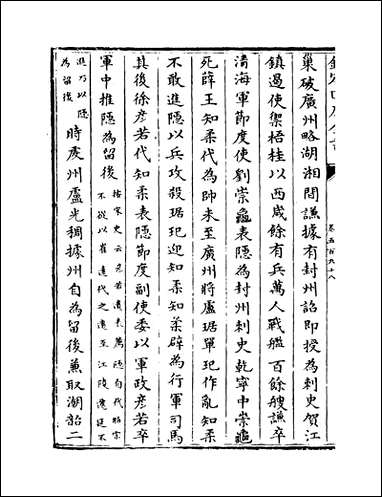 卷五百九十八
巢破廣州略湖湘間謙據有封州詔即授為刺史賀江
鎮遏使禦梧桂以西歲餘有兵萬人戰艦百餘艘謙卒
清海軍節度使劉崇龜表隠為封州刺史乾寧中崇龜
死薛王知柔代為帥未至廣州將盧琚單玘作亂知柔
不敢進隠以兵攻殺琚玘迎知柔知柔辟為行軍司馬
其後徐彥若代知柔表隠節度副使委以軍政彥若卒
軍中推隠為留後
按宋史云彥若遺表薦隠自代昭宗
不從以崔遠代之遠至江陵遷延不
進乃以隠
為留後
時䖍州盧光稠據州自為留後兼取湖韶二